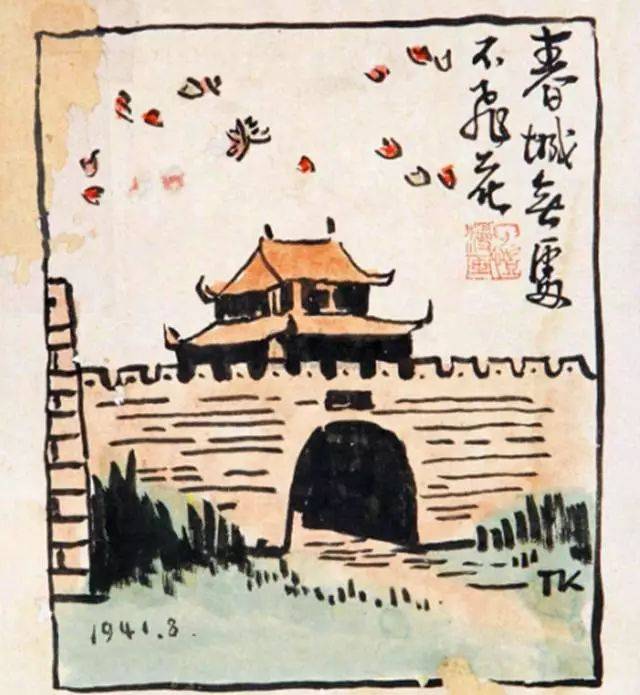 春城無處
不飛花
TK
1941.8.